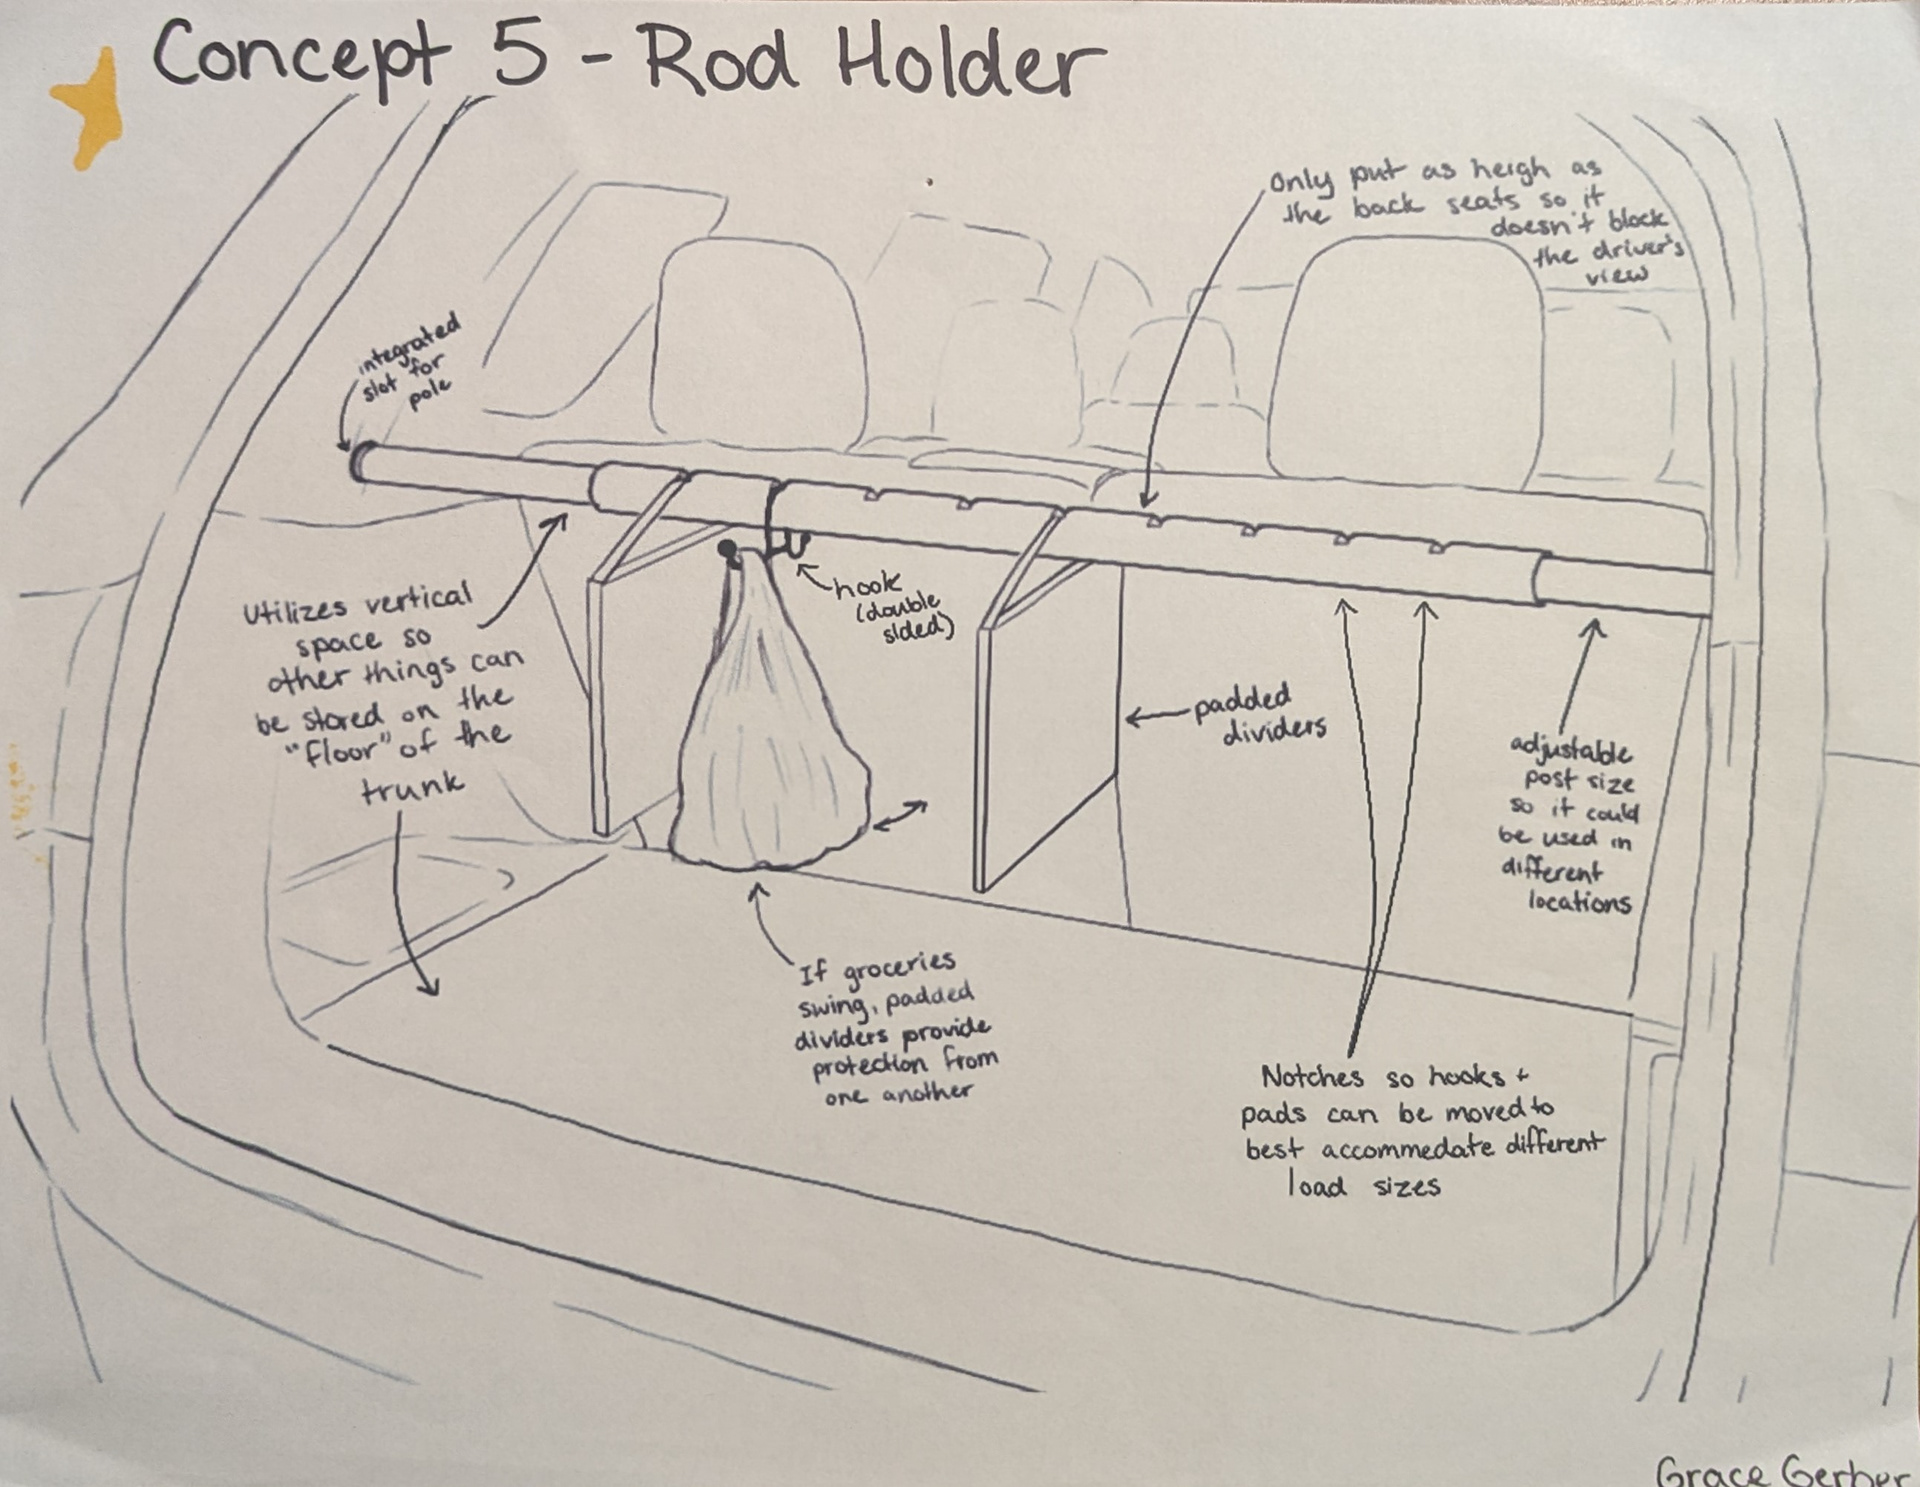 Concept 5 - Rod Holder
Only put as heigh as
the back seats so it
doesn't block
the driver's
view
integrated
slot for
pole
Utilizes vertical
space so
other things can
be stored on the
"floor" of the
trunk
hook
(double
sided)
padded
dividers
adjustable
post size
so it could
be used in
different
locations
If groceries
swing, padded
dividers provide
protection from
one another
Notches so hooks +
pads can be moved to
best accommedate different
load sizes
Grace Gerber